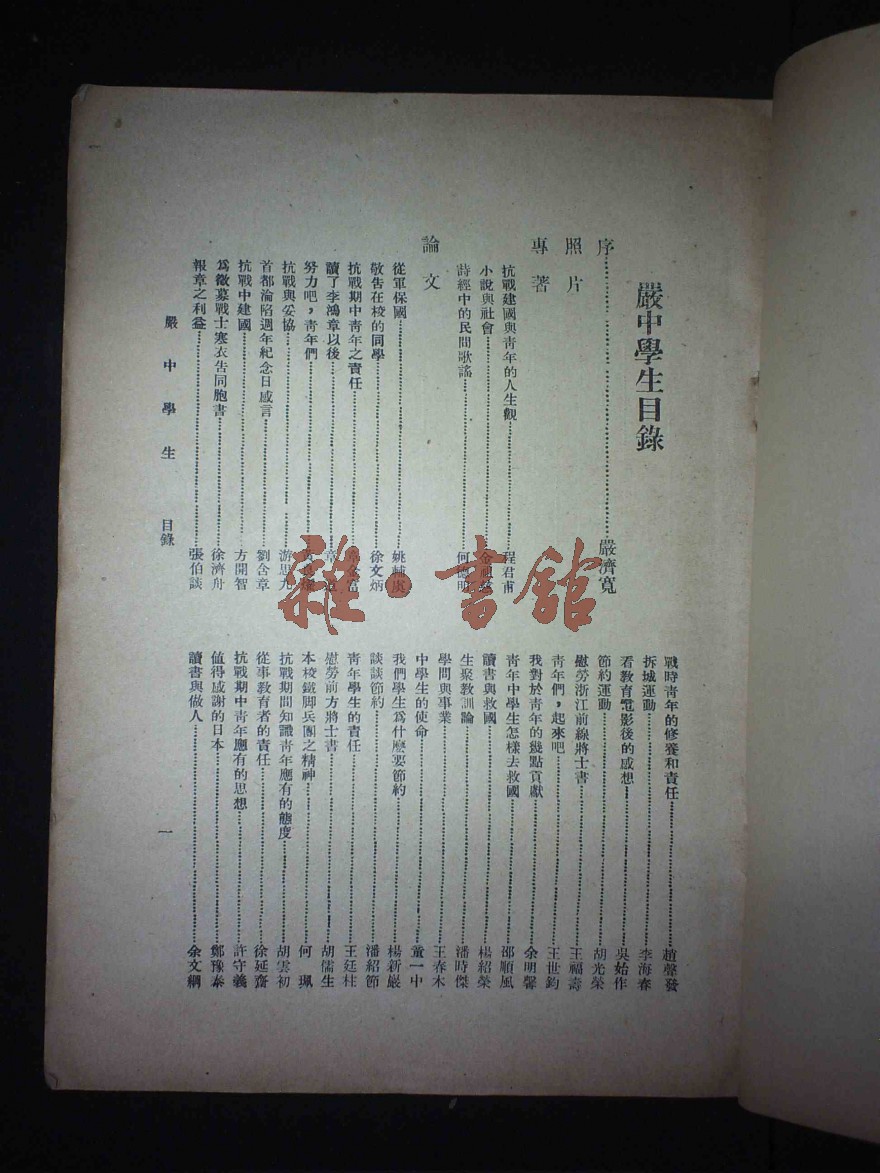 嚴中學生目錄
序……嚴濟寬
照片
專著
抗戰建國與青年的人生觀……程君甫
小說與社會……金
詩經中的民間歌謠……何德明
論文
從軍保國……姚輔虞
敬告在校的同學……徐文炳
抗戰期中青年之責任
讀了李鴻章以後……章
努力吧，青年們
抗戰與妥協……游思九
首都淪陷週年紀念日感言……劉含章
抗戰中建國……方開智
爲徵募戰士寒衣告同胞書……徐濟舟
報章之利益……張伯談
戰時青年的修養和責任……趙聲發
拆城運動……李海春
看教育電影後的感想……吳始作
節約運動……胡光榮
慰勞浙江前線將士書……王福壽
青年們，起來吧……王世鈞
我對於青年的幾點貢獻……余明馨
青年中學生怎樣去救國……邵順風
讀書與救國……楊紹榮
生聚教訓論……潘時傑
學問與事業……王春木
中學生的使命……童一中
我們學生爲什麽要節約……楊新嚴
談談節約……潘紹節
青年學生的責任……王廷柱
慰勞前方將士書……胡儒生
本校鐵脚兵團之精神……何珮
抗戰期間知識青年應有的態度……胡雲初
從事教育者的責任……徐延齋
抗戰期中青年應有的思想……許守義
值得感謝的日本……鄭豫泰
讀書與做人……余文綱
嚴中學生 目錄
一
雜·書館